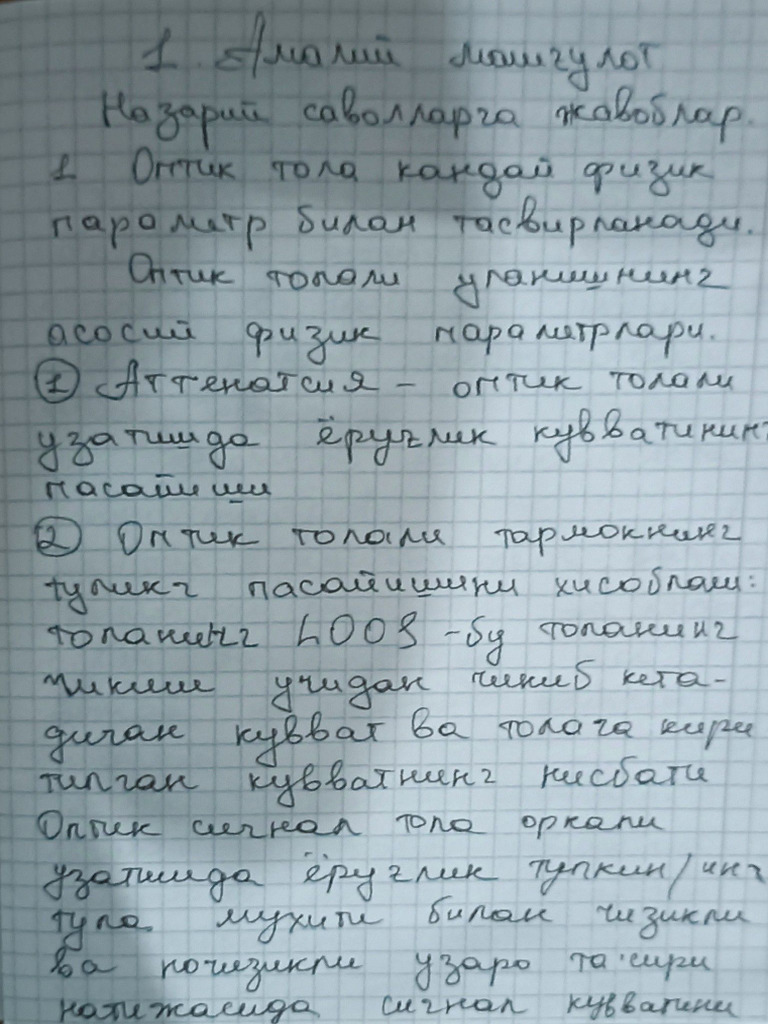 1. Амалий машгулот
Назарий саволларга жавоблар.
1 Оптик тола кандай физик
параметр билан тасвирланади.
Оптик толали уланишнинг
асосий физик параметрлари.
① Аттенатсия - оптик толали
узатишда ёруглик кувватининг
пасайиши
② Оптик толали тармокнинг
тулик пасайишини хисоблаш:
толанинг LOOS - бу толанинг
чикиш учидан чикиб кета-
диган кувват ва толага кири
тилган кувватнинг нисбати
Оптик сигнал тола оркали
узатишда ёруглик тулкин/инг
тула мухити билан чизикли
ва ночизикли узаро та'сири
натижасида сигнал кувватини